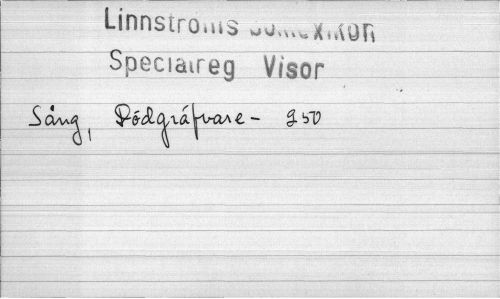 Linnströms Boklexikon
Specialreg Visor
Sång, Dödgräfvare- 950